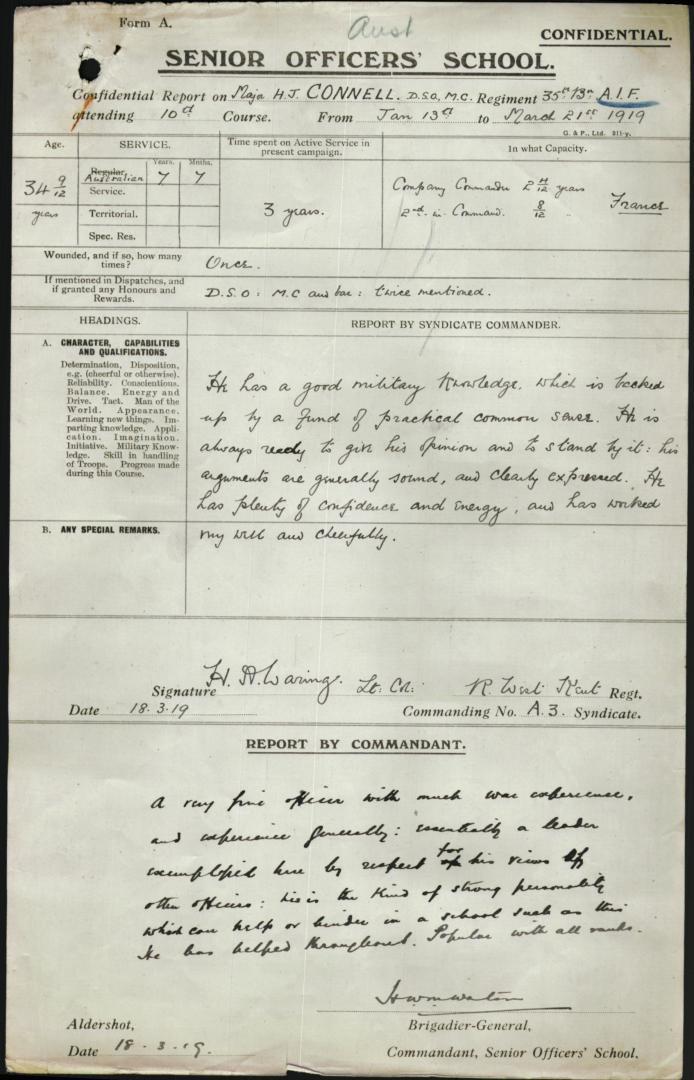 Form A.
Aust
CONFIDENTIAL.
SENIOR OFFICERS' SCHOOL.
Confidential Report on Major H.J. CONNELL. D.S.O, M.C. Regiment 35th Bn A.I.F.
attending 10th Course. From Jan 13th to March 21st 1919
G. & P., Ltd. 211-y.
Age.
SERVICE.
Time spent on Active Service in present campaign.
In what Capacity.
34 9/12 years
Years. Mnths.
Regular, Australian Service. 7 7
Territorial.
Spec. Res.
3 years.
Company Commander 2 4/12 years
2nd in Command. 8/12 "
France
Wounded, and if so, how many times?
Once.
If mentioned in Dispatches, and if granted any Honours and Rewards.
D.S.O: M.C and bar: twice mentioned.
HEADINGS.
REPORT BY SYNDICATE COMMANDER.
A. CHARACTER, CAPABILITIES
AND QUALIFICATIONS.
Determination, Disposition,
e.g. (cheerful or otherwise).
Reliability. Conscientious.
Balance. Energy and
Drive. Tact. Man of the
World. Appearance.
Learning new things. Im-
parting knowledge. Appli-
cation. Imagination.
Initiative. Military Know-
ledge. Skill in handling
of Troops. Progress made
during this Course.
He has a good military knowledge, which is backed
up by a fund of practical common sense. He is
always ready to give his opinion and to stand by it: his
arguments are generally sound, and clearly expressed. He
has plenty of confidence and energy, and has worked
very well and cheerfully.
B. ANY SPECIAL REMARKS.
Signature H. A. Waring. Lt: Col: R. West Kent Regt.
Date 18.3.19 Commanding No. A.3. Syndicate.
REPORT BY COMMANDANT.
A very fine officer with much war experience,
and experience generally: essentially a leader
exemplified here by respect for his views by
other officers: his is the kind of strong personality
which can help or hinder in a school such as this
He has helped throughout. Popular with all ranks.
Aldershot,
Brigadier-General,
Date 18.3.19.
Commandant, Senior Officers' School.